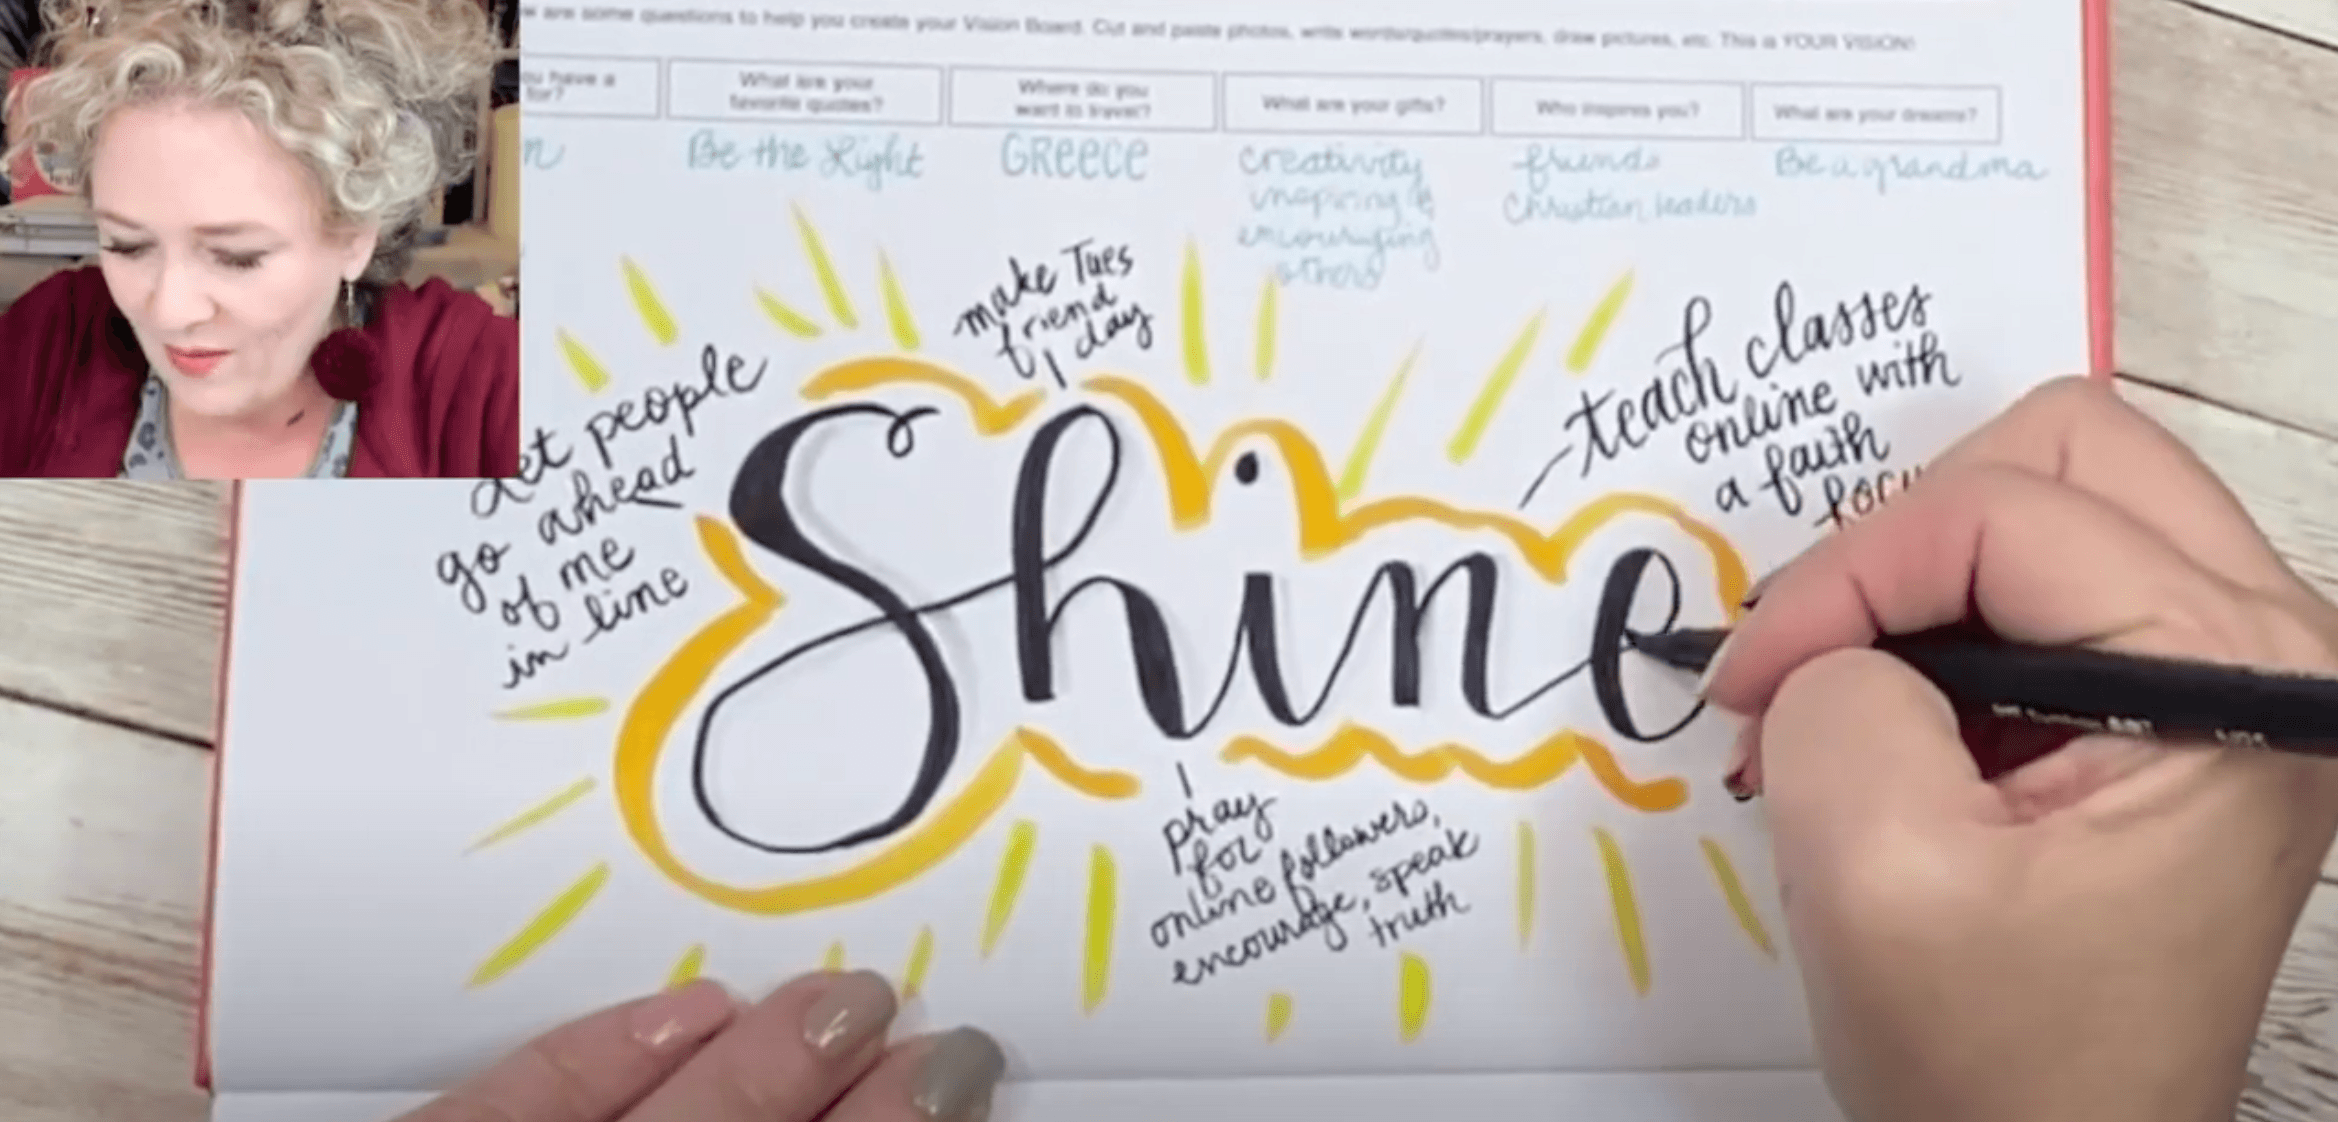 are some questions to help you create your Vision Board. Cut and paste photos, write words/quotes/prayers, draw pictures, etc. This is YOUR VISION!
have a
for?
What are your
favorite quotes?
Where do you
want to travel?
What are your gifts?
Who inspires you?
What are your dreams?
Be the Light
GREECE
Creativity
inspiring &
encouraging
others
friends
Christian leaders
Be a grandma
make Tues
friend
day
Let people
go ahead
of me
in line
teach classes
online with
a faith
focu
Shine
pray
for
online followers,
encourage, speak
truth